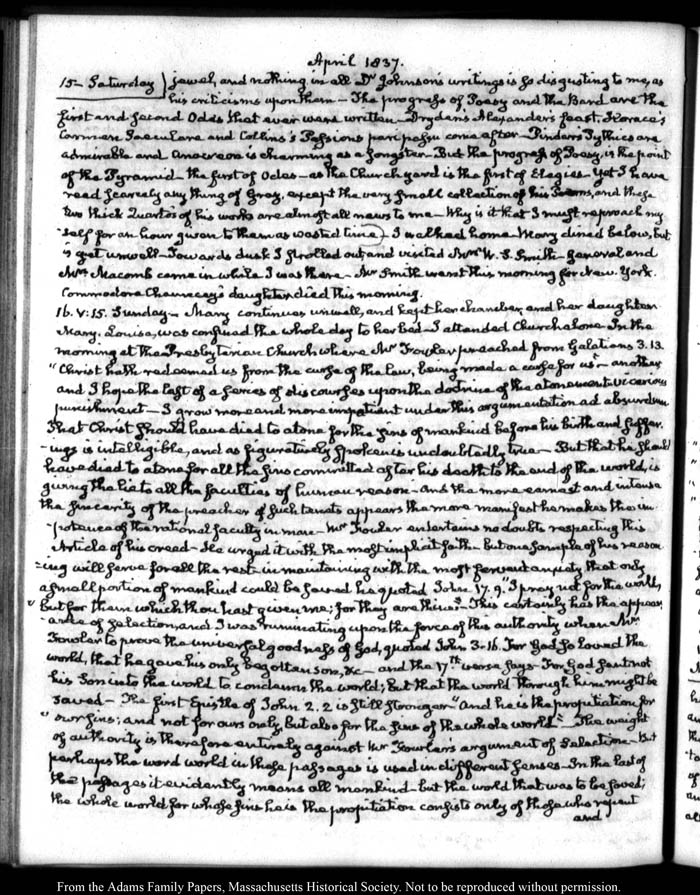 April 1837.
15 – Saturday) jewel, and nothing in all Dr Johnson's writings is so disgusting to me, as
his criticisms upon them – The progress of Poesy and the Bard are the
first and second Odes that ever were written – Dryden's Alexander's feast, Horace's
Carmen Saeculare and Collins's Passions pari passu come after – Pindar's Pythics are
admirable and Anacreon is charming as a songster – But the progress of Poesy, is the point
of the Pyramid – the first of Odes – as the Church yard is the first of Elegies – Yet I have
read scarcely any thing of Gray, except the very small collection of his Poems, and these
two thick Quartos of his works are almost all news to me – Why is it that I must reproach my
self for an hour given to them as wasted time – I walked home – Mary dined below, but
is yet unwell – Towards dusk I strolled out and visited Mrs W. S. Smith – General and
Mrs Macomb came in while I was there – Mr Smith went this morning for New-York.
Commodore Chauncey's daughter died this morning.
16. V:15. Sunday – Mary continues unwell, and kept her chamber, and her daughter
Mary-Louisa, was confined the whole day to her bed – I attended Church alone – In the
morning at the Presbyterian Church where Mr Fowler preached from Galatians 3.13.
"Christ hath redeemed us from the curse of the law, being made a curse for us" – another
and I hope the last of a series of discourses upon the doctrine of the atonement – vicarious
punishment – I grow more and more impatient under this argumentation ad absurdum
That Christ should have died to atone for the sins of mankind before his birth and suffer-
-ings is intelligible, and as figuratively spoken is undoubtedly true – But that he should
have died to atone for all the sins committed after his death to the end of the world, is
giving the lie to all the faculties of human reason – and the more earnest and intense
the sincerity of the preacher of such tenets appears the more manifest he makes the im-
-potence of the rational faculty in man – Mr Fowler entertains no doubts respecting this
Article of his creed – He urged it with the most implicit faith – but one sample of his reason-
-ing will serve for all the rest – in maintaining with the most fervent anxiety that only
a small portion of mankind could be saved he quoted John 17.9. "I pray not for the world,
" but for them which thou hast given me; for they are thine." This certainly has the appear-
-ance of selection, and I was ruminating upon the force of this authority when Mr
Fowler to prove the universal goodness of God, quoted John 3-16. For God so loved the
world, that he gave his only begotten son, &c – and the 17th verse says – For God sent not
his Son into the world to condemn the world; but that the world through him might be
saved – The first Epistle of John 2.2 is still stronger "And he is the propitiation for
" our sins; and not for ours only, but also for the sins of the whole world" – The weight
of authority is therefore entirely against Mr Fowler's argument of selection – But
perhaps the word world in these passages is used in different senses – In the last of
the passages it evidently means all mankind – but the world that was to be saved;
the whole world for whose sins he is the propitiation consists only of those who repent
and
From the Adams Family Papers, Massachusetts Historical Society. Not to be reproduced without permission.